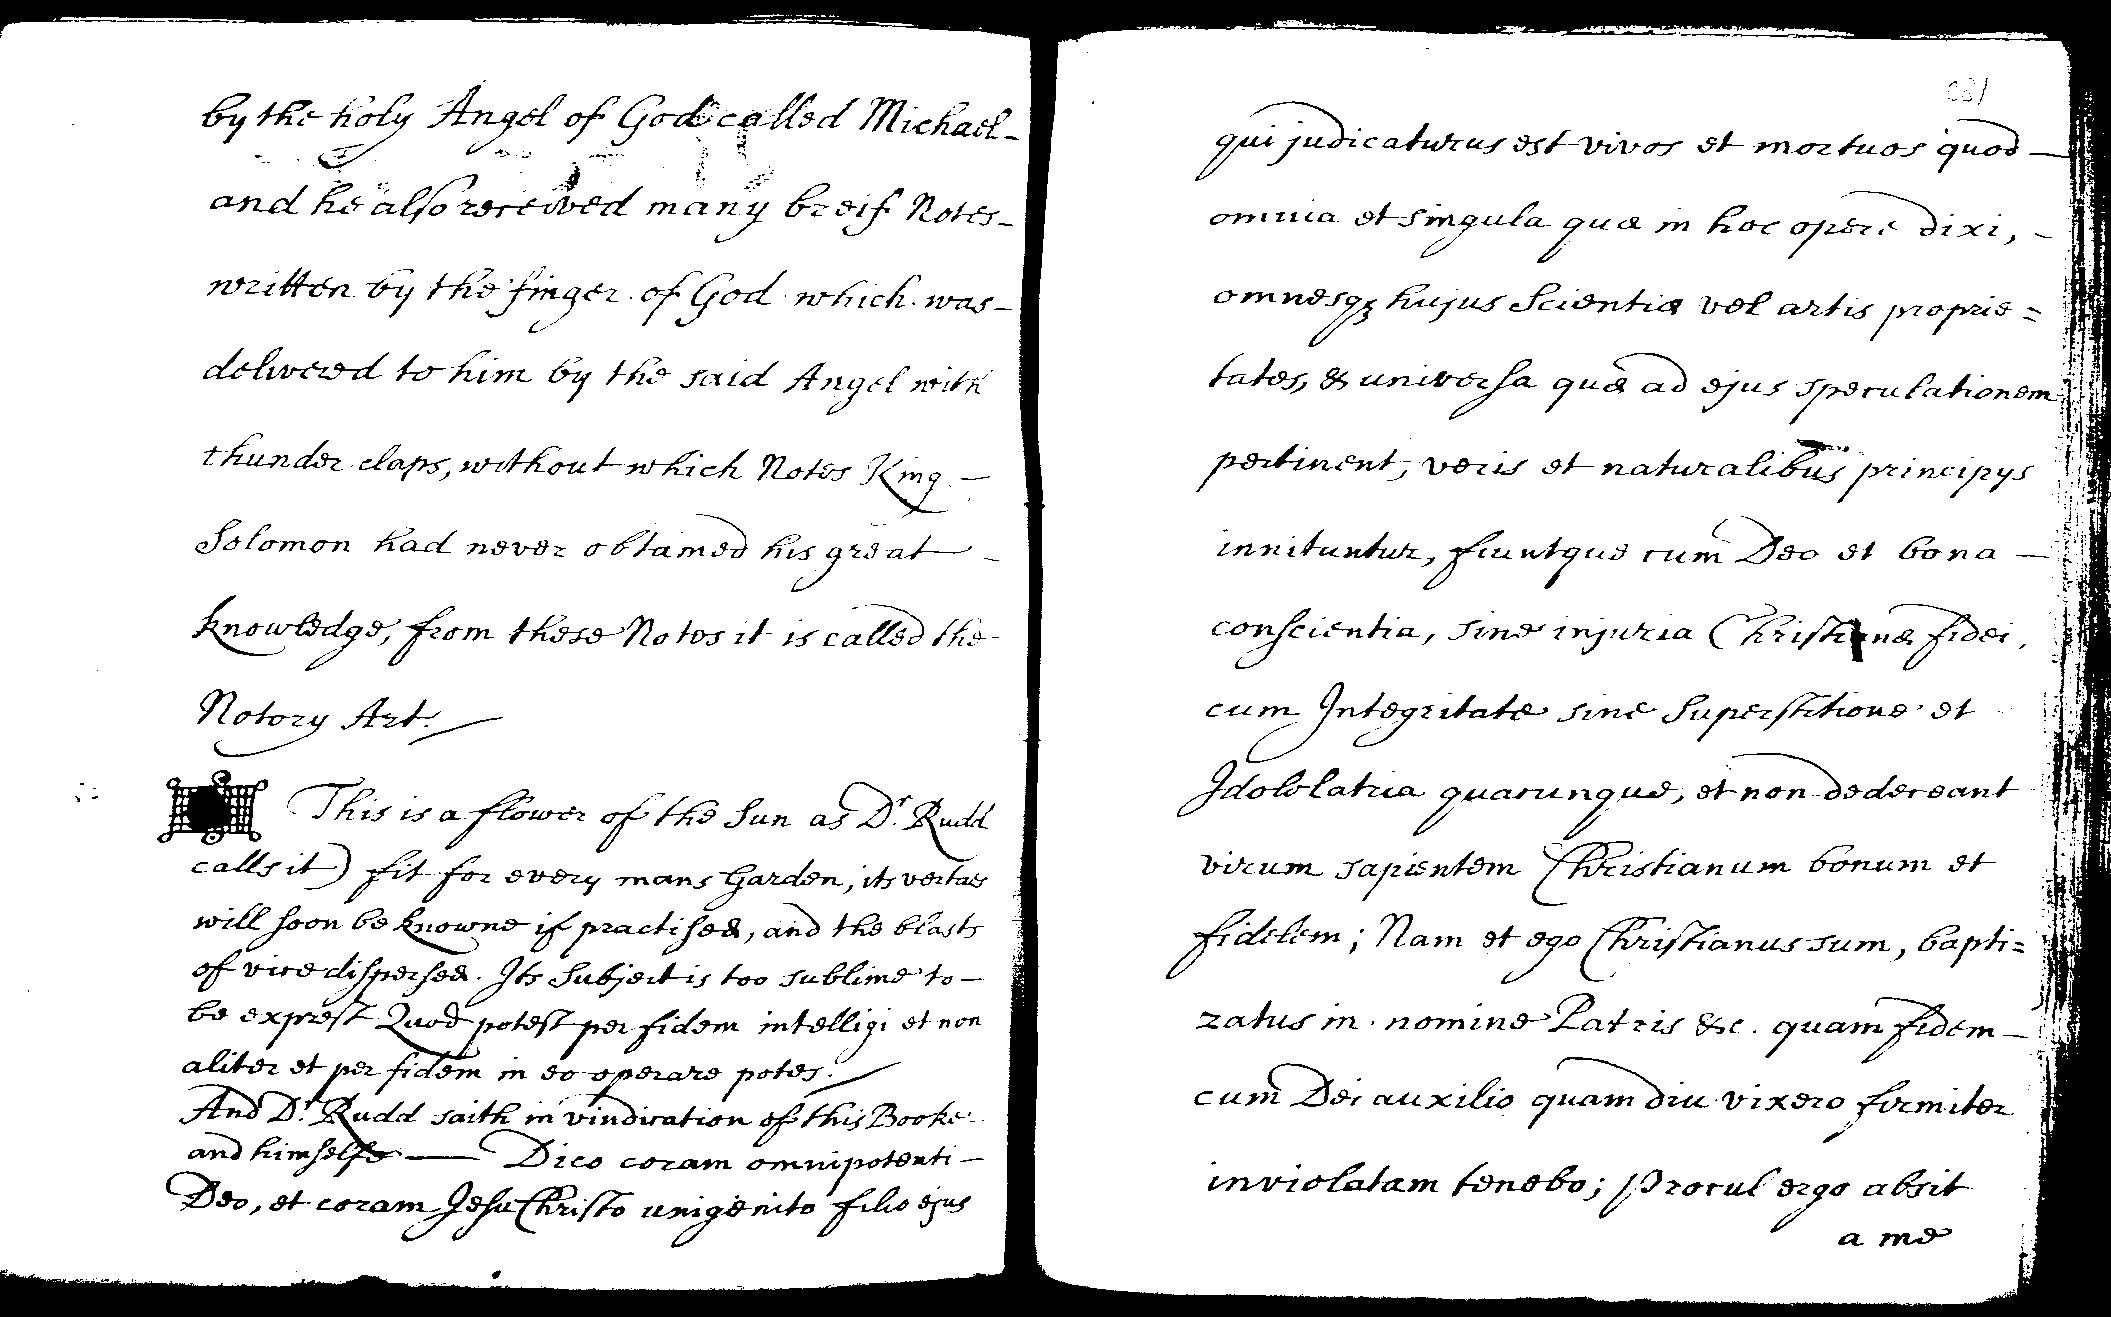 by the holy Angel of God called Michael -
and he also received many breif Notes -
written by the finger of God which was -
delivered to him by the said Angel with
thunder claps, without which Notes King -
Solomon had never obtained his great -
knowledge, from these Notes it is called the
Notory Art.
This is a flower of the Sun as Dr. Rudd
calls it) fit for every mans Garden, its vertues
will soon be knowne if practised, and the blasts
of vice dispersed. Its Subject is too sublime to -
be exprest Quod potest per fidem intelligi et non
aliter et per fidem in eo operare potes.
And Dr. Rudd saith in vindication of this Booke
and himselfe — Dico coram omnipotenti -
Deo, et coram Jesu Christo unigenito filio ejus
qui judicaturus est vivos et mortuos quod -
omnia et singula quæ in hoc opere dixi, -
omnesqz hujus Scientiæ vel artis proprie=
tates, & universa quæ ad ejus speculationem
pertinent, veris et naturalibus principijs
innituntur, fiuntque cum Deo et bona -
conscientia, sine injuria Christianæ fidei,
cum Integritate sine Superstitione et
Idololatria quacunque, et non dedeceant
virum sapientem Christianum bonum et
fidelem; Nam et ego Christianus sum, bapti=
zatus in nomine Patris &c. quam fidem -
cum Dei auxilio quam diu vixero firmiter
inviolatam tenebo; Procul ergo absit
a me